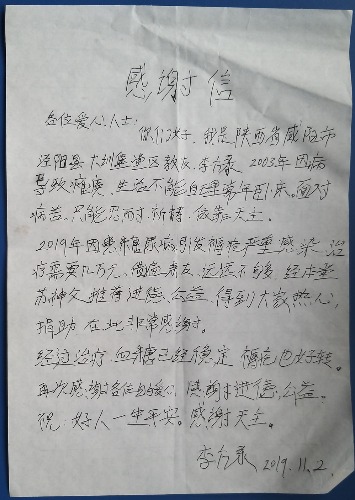 感谢信
各位爱心人士:
你们好, 我是陕西省咸阳市
泾阳县 堡堂区教友, 李 2003年因病
导致瘫痪 生活不能自理常年卧床。面对
病苦, 只能忍耐, 祈祷, 依靠天主。
2019年因患糖尿病引发褥疮严重感染, 治
疗需要几万元, 借遍亲友, 还远不够 经本堂
苏神父推荐进德公益 得到大家热心
捐助 在此非常感谢。
经过治疗 血糖已经稳定 褥疮也好转。
再次感谢各位的爱心 感谢进德公益。
祝 好人一生平安。感谢天主。
李 2019.11.2